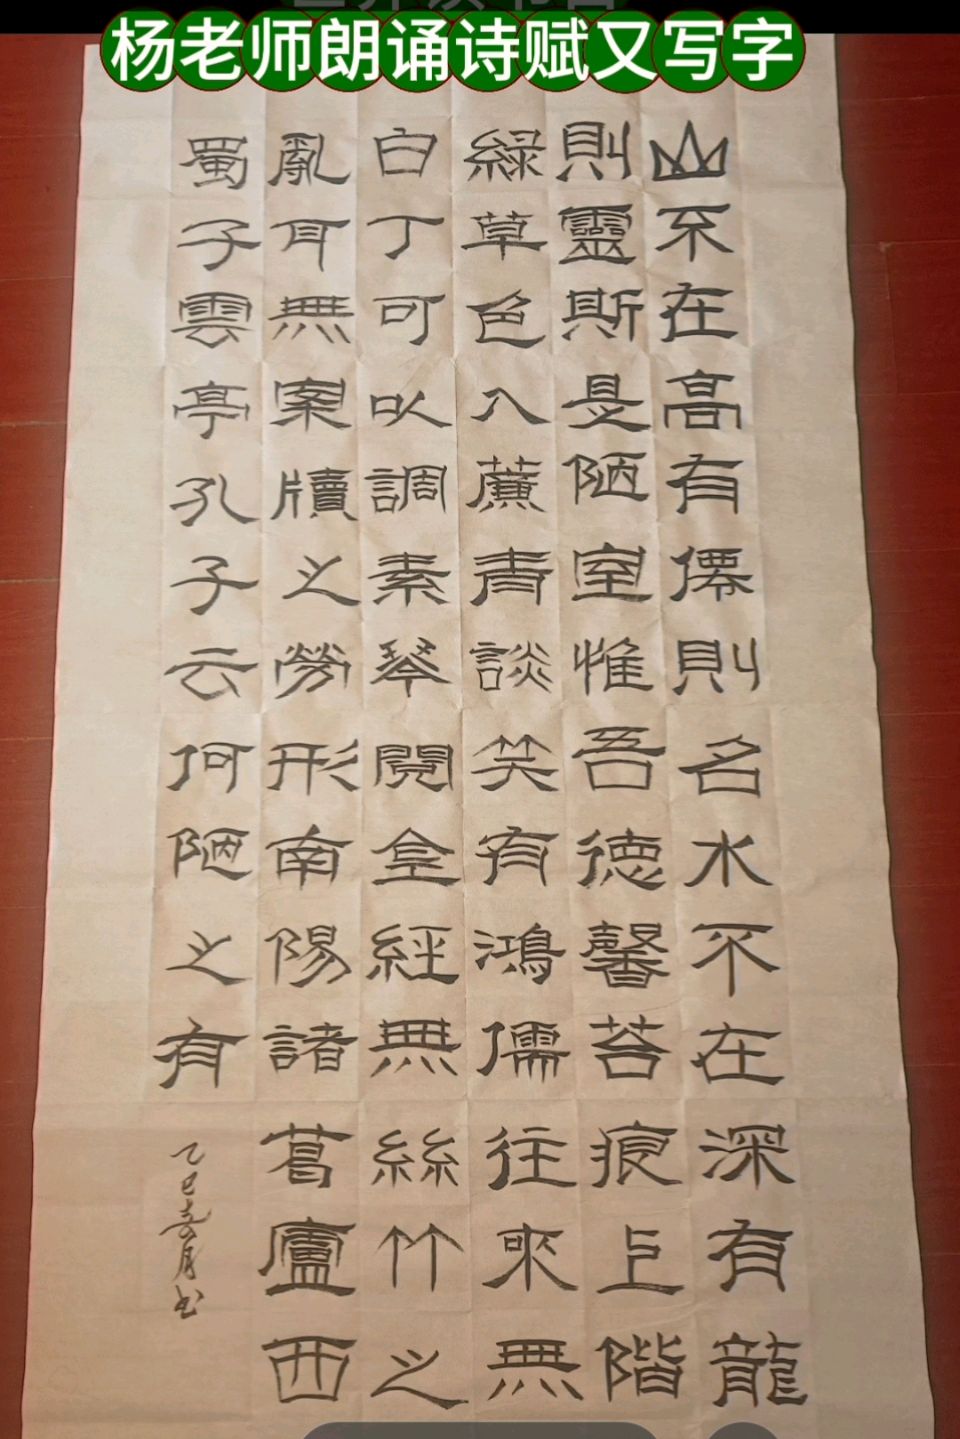 杨老师朗诵诗赋又写字
山不在高有僊則名水不在深有龍
則靈斯是陋室惟吾德馨苔痕上階
綠草色入薕青談笑有鴻儒往來無
白丁可以調素琴閱金經無絲竹之
亂耳無案牘之勞形南陽諸葛廬西
蜀子雲亭孔子云何陋之有
乙巳月书